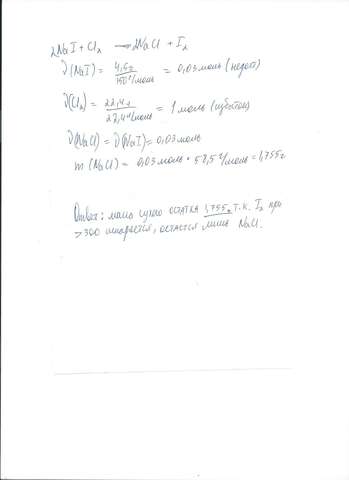 2NaI + Cl₂ → 2NaCl + I₂
ν(NaI) = 4,5г / 150 г/моль = 0,03 моль (недост)
ν(Cl₂) = 22,4л / 22,4 л/моль = 1 моль (избыток)
ν(NaCl) = ν(NaI) = 0,03 моль
m(NaCl) = 0,03 моль • 58,5 г/моль = 1,755г.
Ответ: масса сухого остатка 1,755г т.к. I₂ при
>300 испаряется, остаётся лишь NaCl.